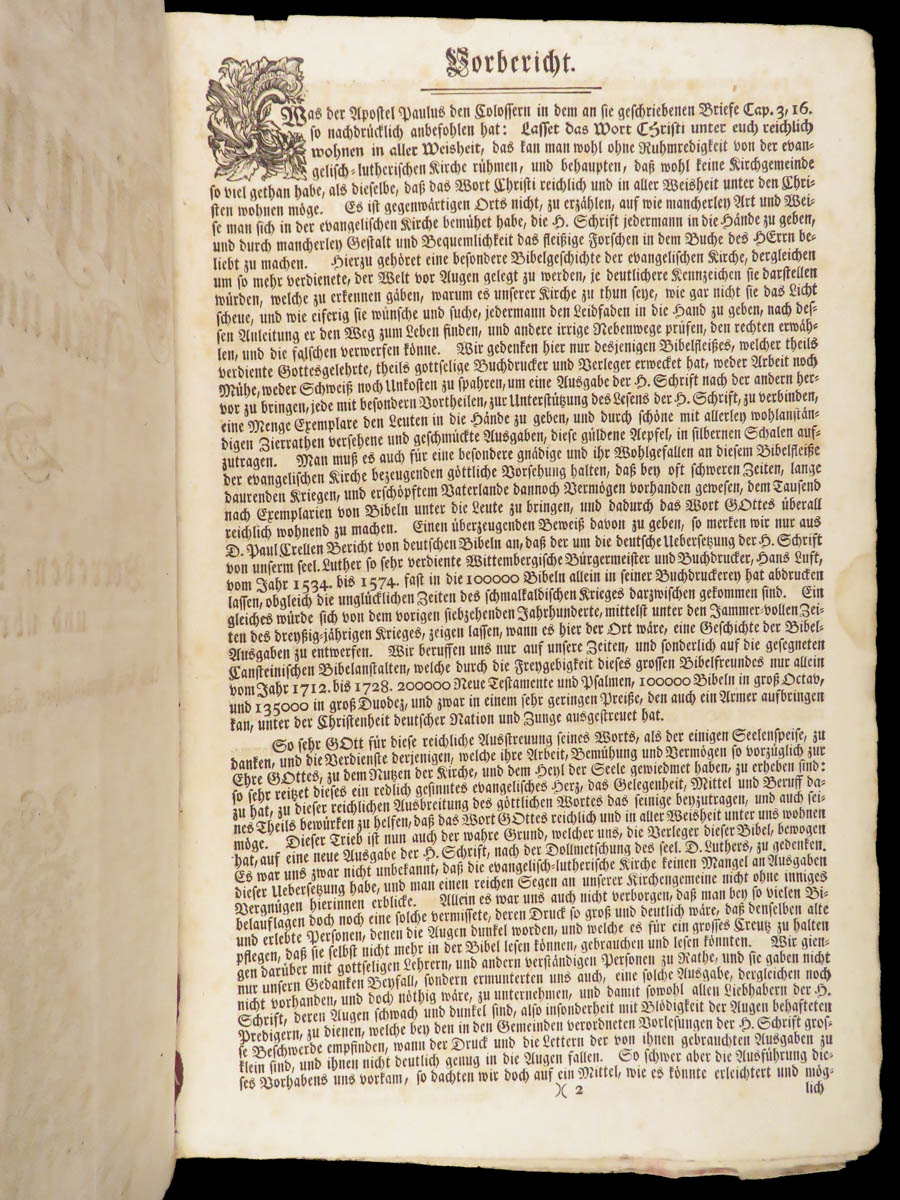 Vorbericht.
Was der Apostel Paulus den Colossern in dem an sie geschriebenen Briefe Cap. 3, 16.
so nachdrücklich anbefohlen hat: Lasset das Wort CHristi unter euch reichlich
wohnen in aller Weisheit, das kan man wohl ohne Ruhmredigkeit von der evan-
gelisch-lutherischen Kirche rühmen, und behaupten, daß wohl keine Kirchgemeinde
so viel gethan habe, als dieselbe, daß das Wort Christi reichlich und in aller Weisheit unter den Chri-
sten wohnen möge. Es ist gegenwärtigen Orts nicht, zu erzählen, auf wie mancherley Art und Wei-
se man sich in der evangelischen Kirche bemühet habe, die H. Schrift jedermann in die Hände zu geben,
und durch mancherley Gestalt und Bequemlichkeit das fleißige Forschen in dem Buche des HErrn be-
liebt zu machen. Hierzu gehöret eine besondere Bibelgeschichte der evangelischen Kirche, dergleichen
um so mehr verdienete, der Welt vor Augen gelegt zu werden, je deutlichere Kennzeichen sie darstellen
würden, welche zu erkennen gäben, warum es unserer Kirche zu thun seye, wie gar nicht sie das Licht
scheue, und wie eiferig sie wünsche und suche, jedermann den Leidfaden in die Hand zu geben, nach des-
sen Anleitung er den Weg zum Leben finden, und andere irrige Nebenwege prüfen, den rechten erwäh-
len, und die falschen verwerfen könne. Wir gedenken hier nur desjenigen Bibelfleißes, welcher theils
verdiente Gottesgelehrte, theils gottselige Buchdrucker und Verleger erwecket hat, weder Arbeit noch
Mühe, weder Schweiß noch Unkosten zu spahren, um eine Ausgabe der H. Schrift nach der andern her-
vor zu bringen, jede mit besondern Vortheilen, zur Unterstützung des Lesens der H. Schrift, zu verbinden,
eine Menge Exemplare den Leuten in die Hände zu geben, und durch schöne mit allerley wohlanstän-
digen Zierrathen versehene und geschmückte Ausgaben, diese güldene Aepfel, in silbernen Schalen auf-
zutragen. Man muß es auch für eine besondere gnädige und ihr Wohlgefallen an diesem Bibelfleiße
der evangelischen Kirche bezeugenden göttliche Vorsehung halten, daß bey oft schweren Zeiten, lange
daurenden Kriegen, und erschöpftem Vaterlande dannoch Vermögen vorhanden gewesen, dem Tausend
nach Exemplarien von Bibeln unter die Leute zu bringen, und dadurch das Wort GOttes überall
reichlich wohnend zu machen. Einen überzeugenden Beweiß davon zu geben, so merken wir nur aus
D. Paul Crellen Bericht von deutschen Bibeln an, daß der um die deutsche Uebersetzung der H. Schrift
von unserm seel. Luther so sehr verdiente Wittembergische Bürgermeister und Buchdrucker, Hans Luft,
vom Jahr 1534. bis 1574. fast in die 100000 Bibeln allein in seiner Buchdruckerey hat abdrucken
lassen, obgleich die unglücklichen Zeiten des schmalkaldischen Krieges darzwischen gekommen sind. Ein
gleiches würde sich von dem vorigen siebzehenden Jahrhunderte, mittelst unter den Jammer-vollen Zei-
ten des dreyßig-jährigen Krieges, zeigen lassen, wann es hier der Ort wäre, eine Geschichte der Bibel-
Ausgaben zu entwerfen. Wir beruffen uns nur auf unsere Zeiten, und sonderlich auf die gesegneten
Cansteinischen Bibelanstalten, welche durch die Freygebigkeit dieses grossen Bibelfreundes nur allein
vom Jahr 1712. bis 1728. 200000 Neue Testamente und Psalmen, 100000 Bibeln in groß Octav,
und 135000 in groß Duodez, und zwar in einem sehr geringen Preiße, den auch ein Armer aufbringen
kan, unter der Christenheit deutscher Nation und Zunge ausgestreuet hat.
So sehr GOtt für diese reichliche Ausstreuung seines Worts, als der einigen Seelenspeise, zu
danken, und die Verdienste derjenigen, welche ihre Arbeit, Bemühung und Vermögen so vorzüglich zur
Ehre GOttes, zu dem Nutzen der Kirche, und dem Heyl der Seele gewiedmet haben, zu erheben sind:
so sehr reitzet dieses ein redlich gesinntes evangelisches Herz, das Gelegenheit, Mittel und Beruff da-
zu hat, zu dieser reichlichen Ausbreitung des göttlichen Wortes das seinige beyzutragen, und auch sei-
nes Theils bewürken zu helfen, daß das Wort GOttes reichlich und in aller Weisheit unter uns wohnen
möge. Dieser Trieb ist nun auch der wahre Grund, welcher uns, die Verleger dieser Bibel, bewogen
hat, auf eine neue Ausgabe der H. Schrift, nach der Dollmetschung des seel. D. Luthers, zu gedenken.
Es war uns zwar nicht unbekannt, daß die evangelisch-lutherische Kirche keinen Mangel an Ausgaben
dieser Uebersetzung habe, und man einen reichen Segen an unserer Kirchengemeine nicht ohne inniges
Vergnügen hierinnen erblicke. Allein es war uns auch nicht verborgen, daß man bey so vielen Bi-
belauflagen doch noch eine solche vermissete, deren Druck so groß und deutlich wäre, daß denselben alte
und erlebte Personen, denen die Augen dunkel worden, und welche es für ein grosses Creutz zu halten
pflegen, daß sie selbst nicht mehr in der Bibel lesen können, gebrauchen und lesen könnten. Wir gien-
gen darüber mit gottseligen Lehrern, und andern verständigen Personen zu Rathe, und sie gaben nicht
nur unsern Gedanken Beyfall, sondern ermunterten uns auch, eine solche Ausgabe, dergleichen noch
nicht vorhanden, und doch nöthig wäre, zu unternehmen, und damit sowohl allen Liebhabern der H.
Schrift, deren Augen schwach und dunkel sind, also insonderheit mit Blödigkeit der Augen behafteten
Predigern, zu dienen, welche bey den in den Gemeinden verordneten Vorlesungen der H. Schrift gros-
se Beschwerde empfinden, wann der Druck und die Lettern der von ihnen gebrauchten Ausgaben zu
klein sind, und ihnen nicht deutlich genug in die Augen fallen. So schwer aber die Ausführung die-
ses Vorhabens uns vorkam, so dachten wir doch auf ein Mittel, wie es könnte erleichtert und mög-
)( 2 lich